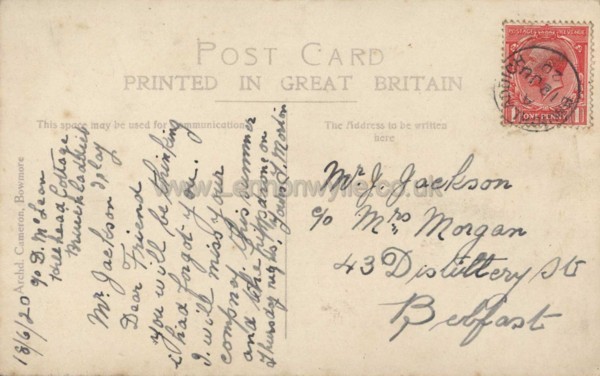 POST CARD
PRINTED IN GREAT BRITAIN
This space may be used for communication
The Address to be written
here
Archd. Cameron, Bowmore
www.Lennonwylie.co.uk
POSTAGE REVENUE
ONE PENNY
18/6/20
c/o D. McLean
Hill head Cottage
Bruichladdich
Islay
Mr. Jackson
Dear Friend
you will be thinking
i had forgot you.
I will miss your
compney this summer
and the
Thursday nights.
Morton
Mr J. Jackson
c/o Mrs Morgan
43 Distillery St
Belfast